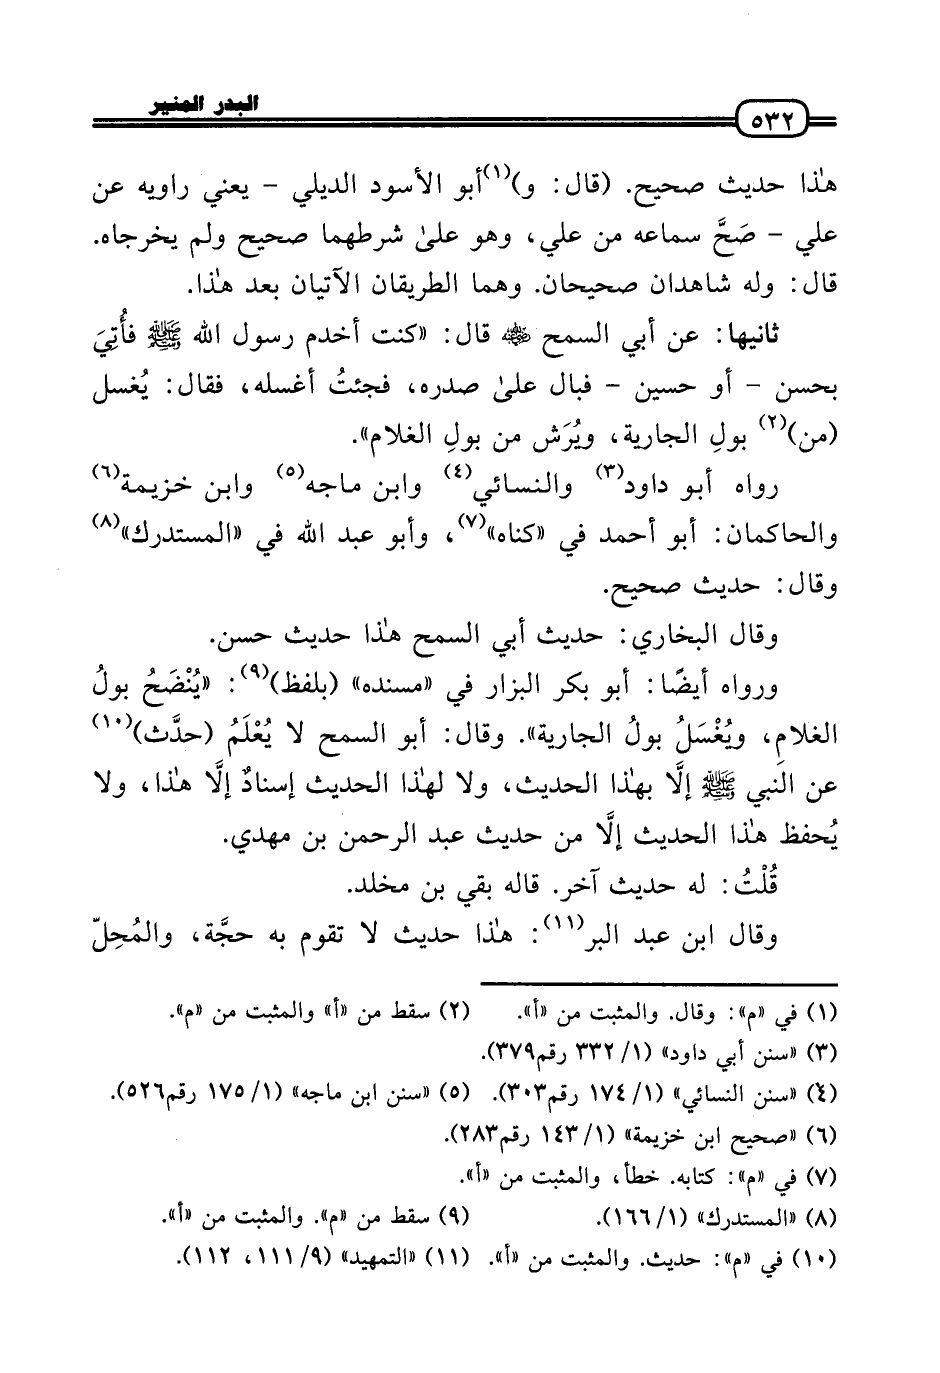 البدر المنير
٥٣٢
هٰذا حديث صحيح. (قال: و)(١) أبو الأسود الديلي - يعني راويه عن
علي - صَحَّ سماعه من علي، وهو علىٰ شرطهما صحيح ولم يخرجاه.
قال: وله شاهدان صحيحان. وهما الطريقان الآتيان بعد هٰذا.
ثانيها: عن أبي السمح رضي الله عنه قال: «كنت أخدم رسول الله ﷺ فأُتِيَ
بحسن - أو حسين - فبال علىٰ صدره، فجئتُ أغسله، فقال: يُغسل
(من)(٢) بولِ الجارية، ويُرَش من بولِ الغلام».
رواه أبو داود(٣) والنسائي(٤) وابن ماجه(٥) وابن خزيمة(٦)
والحاكمان: أبو أحمد في «كناه»(٧)، وأبو عبد الله في «المستدرك»(٨)
وقال: حديث صحيح.
وقال البخاري: حديث أبي السمح هٰذا حديث حسن.
ورواه أيضًا: أبو بكر البزار في «مسنده» (بلفظ)(٩): «يُنْضَحُ بولُ
الغلام، ويُغْسَلُ بولُ الجارية». وقال: أبو السمح لا يُعْلَمُ (حدَّث)(١٠)
عن النبي ﷺ إلَّا بهٰذا الحديث، ولا لهٰذا الحديث إسنادٌ إلَّا هٰذا، ولا
يُحفظ هٰذا الحديث إلَّا من حديث عبد الرحمن بن مهدي.
قُلْتُ: له حديث آخر. قاله بقي بن مخلد.
وقال ابن عبد البر(١١): هٰذا حديث لا تقوم به حجَّة، والمُحِلّ
(١) في «م»: وقال. والمثبت من «أ». (٢) سقط من «أ» والمثبت من «م».
(٣) «سنن أبي داود» (١/ ٣٣٢ رقم٣٧٩).
(٤) «سنن النسائي» (١/ ١٧٤ رقم٣٠٣). (٥) «سنن ابن ماجه» (١/ ١٧٥ رقم٥٢٦).
(٦) «صحيح ابن خزيمة» (١/ ١٤٣ رقم٢٨٣).
(٧) في «م»: كتابه. خطأ، والمثبت من «أ».
(٨) «المستدرك» (١/ ١٦٦). (٩) سقط من «م». والمثبت من «أ».
(١٠) في «م»: حديث. والمثبت من «أ». (١١) «التمهيد» (٩/ ١١١، ١١٢).